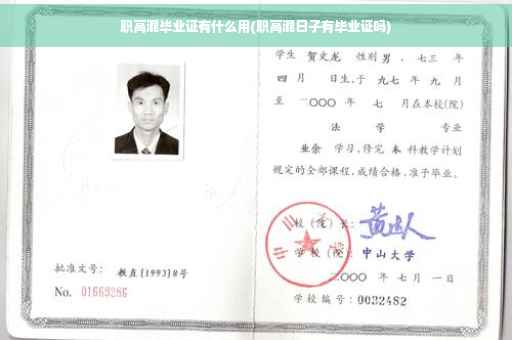 职高混毕业证有什么用(职高混日子有毕业证吗)
学生 贺文龙 性别 男 、七三 年
四 月 日生,于 九七 年 九 月
至 二〇〇〇 年 七 月在本校(院)
法 学 专业
业余 学习,修完 本 科教学计划
规定的全部课程,成绩合格,准予毕业。
校 (院) 长:
学 校 (院): 中山大学
二〇〇〇 年 七 月 一 日
学校编号: 0032482
批准文号: 教直(1993)8号
No. 01669286